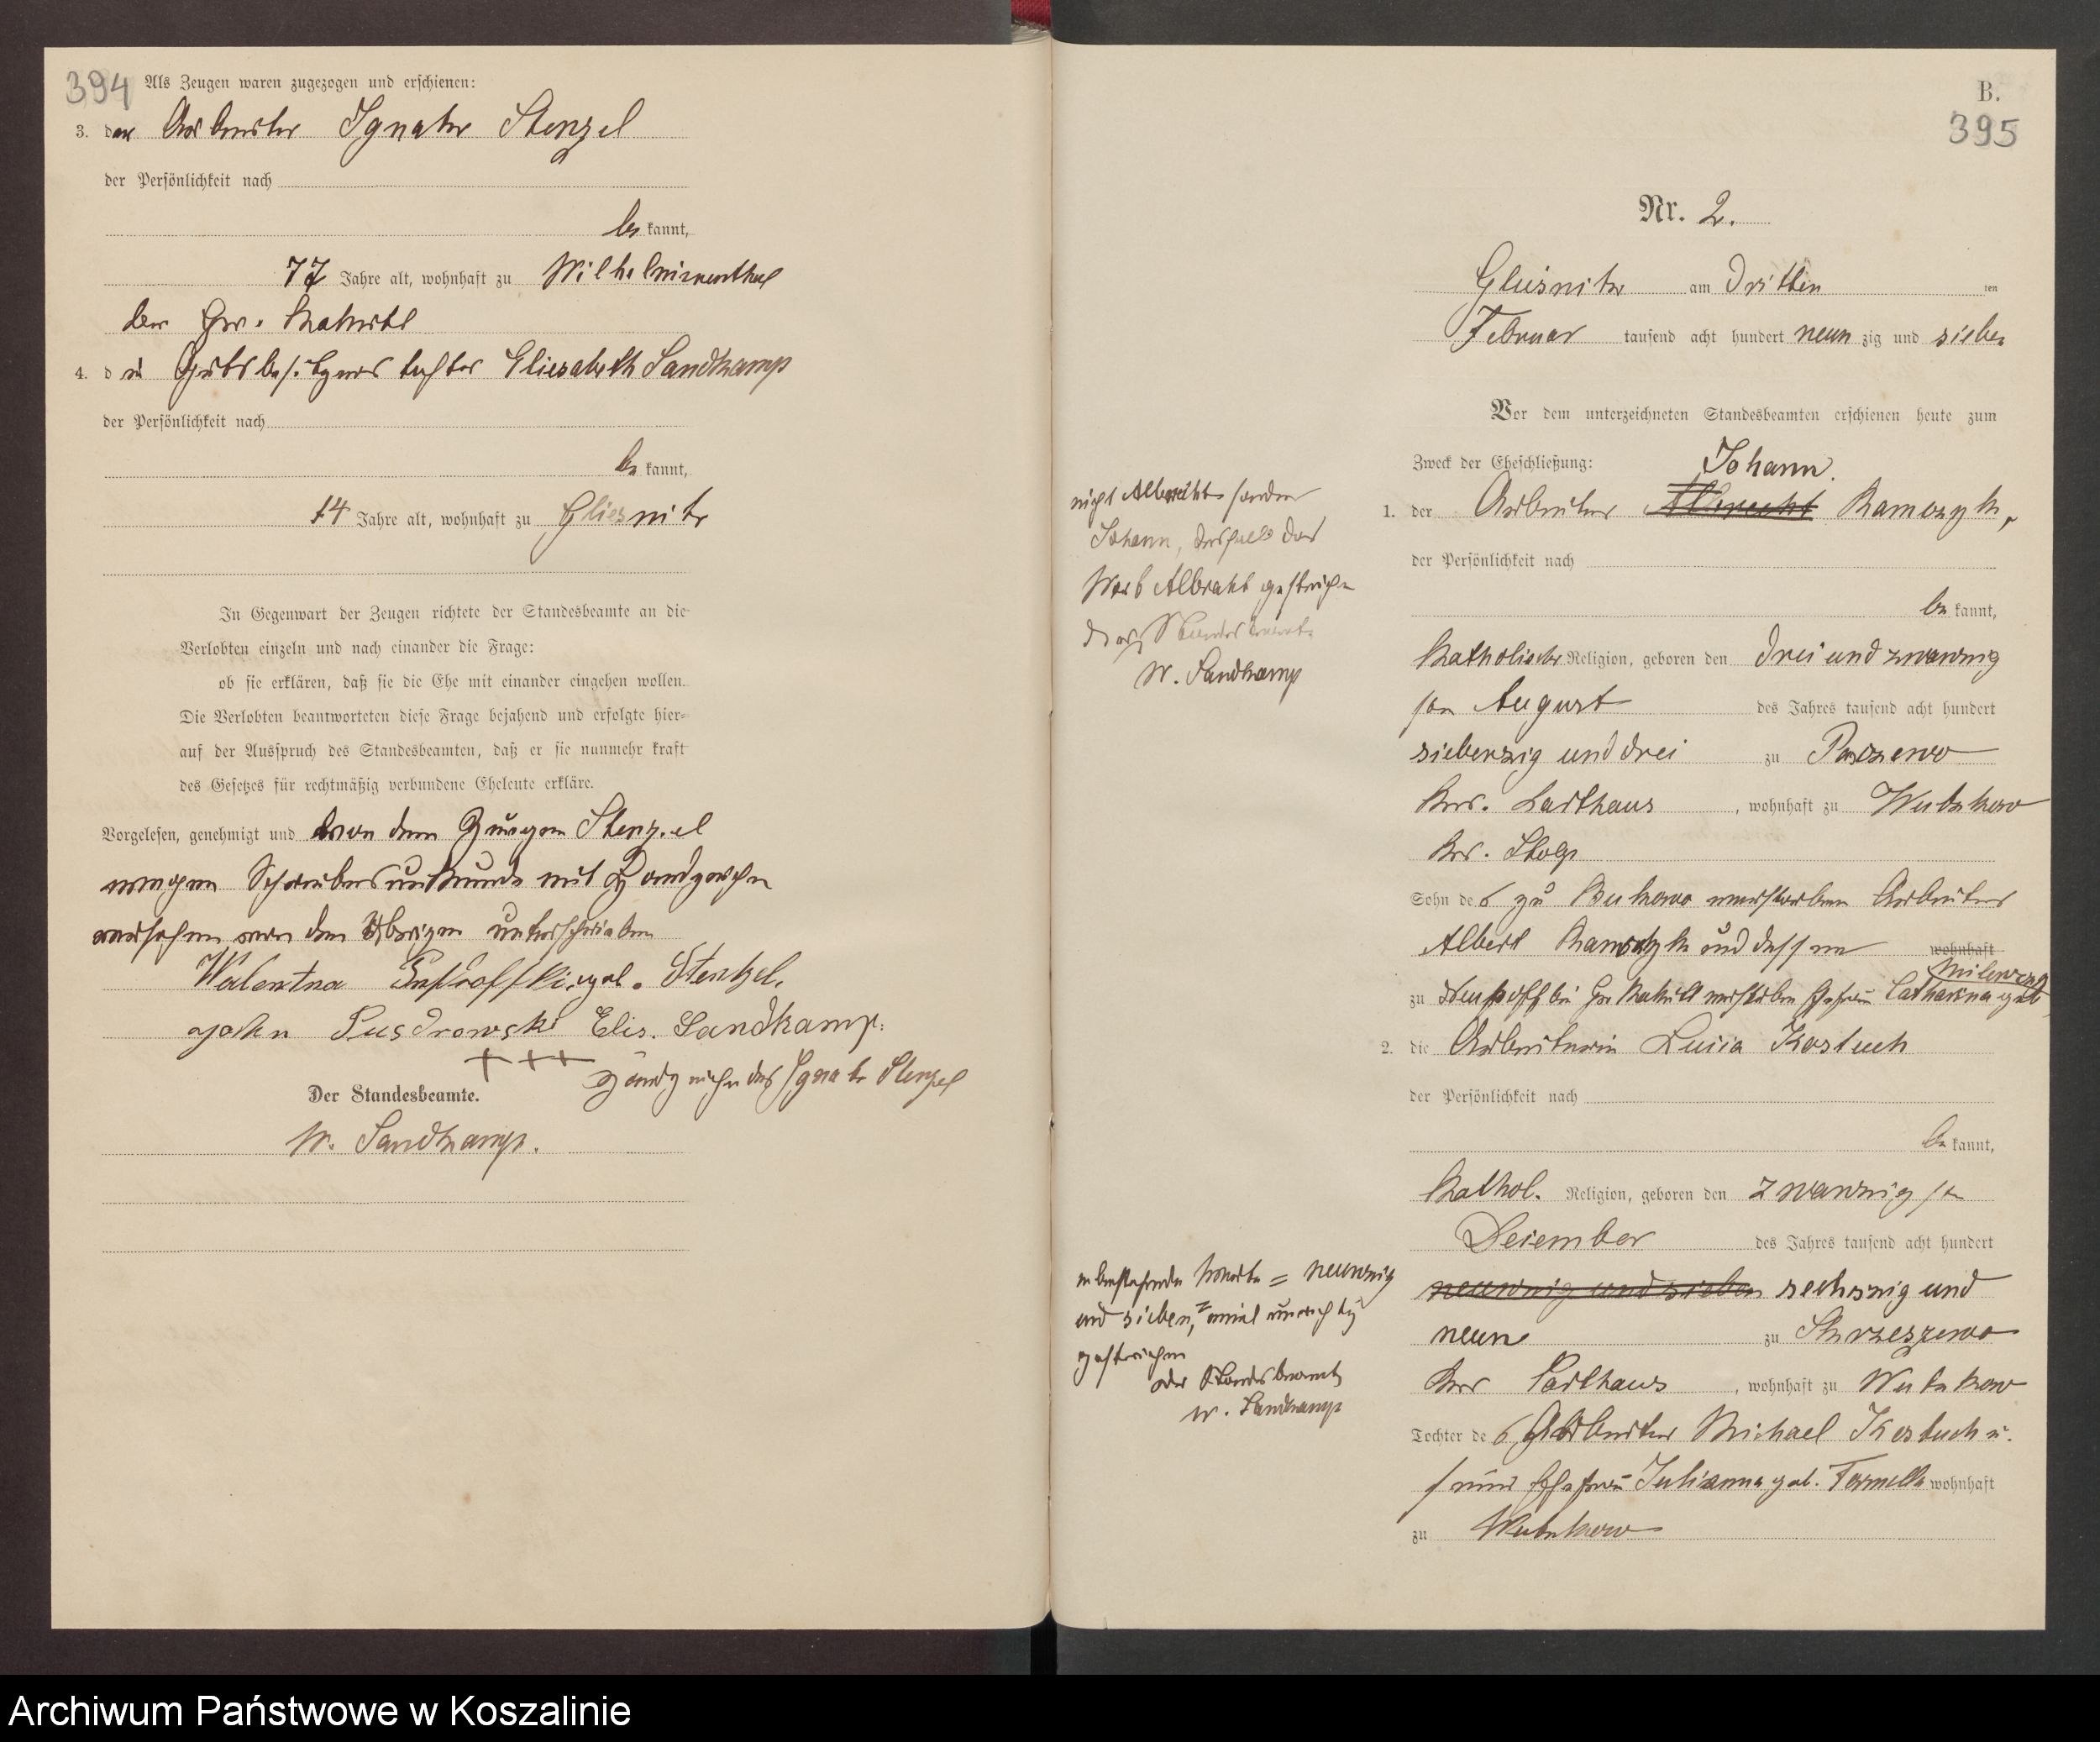 394
Als Zeugen waren zugezogen und erschienen:
3. der Arbeiter Ignatz Stenzel
der Persönlichkeit nach
be kannt,
77 Jahre alt, wohnhaft zu Wilhelminenthal
bei
4. die Gutsbesitzers tochter Eliesabeth Sandkamp
der Persönlichkeit nach
be kannt,
Jahre alt, wohnhaft zu Gliesnitz
In Gegenwart der Zeugen richtete der Standesbeamte an die
Verlobten einzeln und nach einander die Frage:
ob sie erklären, daß sie die Ehe mit einander eingehen wollen.
Die Verlobten beantworteten diese Frage bejahend und erfolgte hier-
auf der Ausspruch des Standesbeamten, daß er sie nunmehr kraft
des Gesetzes für rechtmäßig verbundene Eheleute erkläre.
Vorgelesen, genehmigt und von dem Zeugen Stenzel
wegen Schreibensunkunde mit Handzeichen
versehen von den Übrigen unterschrieben
Walentna geb. Stentzel.
Elis. Sandkamp.
+++ Handzeichen des Ignatz Stenzel
Der Standesbeamte.
W. Sandkamp.
B.
395
Nr. 2.
Gliesnitz am dritten ten
Februar tausend acht hundert neun zig und sieben
Vor dem unterzeichneten Standesbeamten erschienen heute zum
Zweck der Eheschließung:
Johann.
1. der Arbeiter Albrecht Kamczyk,
der Persönlichkeit nach
be kannt,
Katholischer Religion, geboren den drei und zwanzig
sten August des Jahres tausend acht hundert
siebenzig und drei zu
Krs. Carthaus, wohnhaft zu Wutzkow
Krs. Stolp
Sohn des zu verstorbenen Arbeiter
Albert und dessen wohnhaft
zu bei verstorbenen Ehefrau Catharina geb.
2. die Arbeiterin Lucia Kostuch
der Persönlichkeit nach
be kannt,
Kathol. Religion, geboren den zwanzigsten
Dezember des Jahres tausend acht hundert
neunzig und sieben sechszig und
neun zu
Krs Carthaus, wohnhaft zu Wutzkow
Tochter des Arbeiter Michael Kostuch u.
seiner Ehefrau Julianna geb. wohnhaft
zu Wutzkow
nicht Albrecht sondern
Johann, deshalb das
Wort Albrecht gestrichen
der Standesbeamte
W. Sandkamp
Worte = neunzig
und sieben, = weil unrichtig
gestrichen
der Standesbeamte
W. Sandkamp
Archiwum Państwowe w Koszalinie